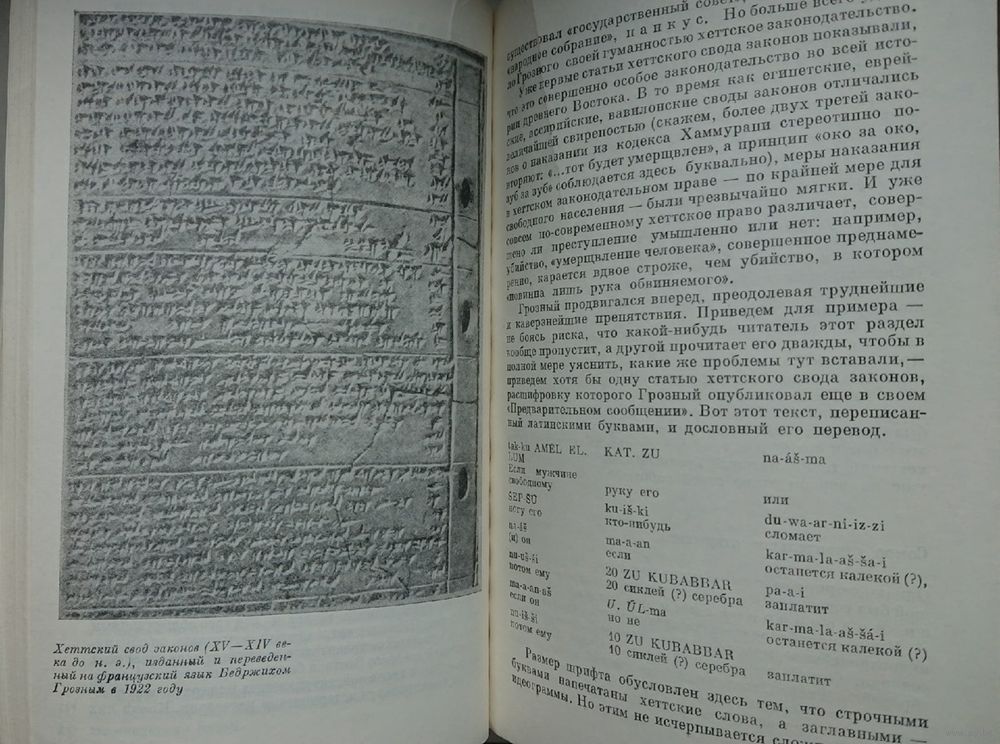 Хеттский свод законов (XV—XIV ве-
ка до н. э.), изданный и переведен-
ный на французский язык Бедржихом
Грозным в 1922 году
существовал «государственный
«народное собрание», панкус. Но больше всего
ло Грозного своей гуманностью хеттское законодательство.
Уже первые статьи хеттского свода законов показывали,
что это совершенно особое законодательство во всей исто-
рии древнего Востока. В то время как египетские, еврей-
ские, ассирийские, вавилонские своды законов отличались
величайшей свирепостью (скажем, более двух третей зако-
нов о наказании из кодекса Хаммурапи стереотипно по-
вторяют: «...тот будет умерщвлен», а принцип «око за око,
зуб за зуб» соблюдается здесь буквально), меры наказания
в хеттском законодательном праве — по крайней мере для
свободного населения — были чрезвычайно мягки. И уже
совсем по-современному хеттское право различает, совер-
шено ли преступление умышленно или нет: например,
убийство, «умерщвление человека», совершенное преднаме-
ренно, карается вдвое строже, чем убийство, в котором
«повинна лишь рука обвиняемого».
Грозный продвигался вперед, преодолевая труднейшие
и каверзнейшие препятствия. Приведем для примера —
не боясь риска, что какой-нибудь читатель этот раздел
вообще пропустит, а другой прочитает его дважды, чтобы в
полной мере уяснить, какие же проблемы тут вставали,—
приведем хотя бы одну статью хеттского свода законов,
расшифровку которого Грозный опубликовал еще в своем
«Предварительном сообщении». Вот этот текст, переписан-
ный латинскими буквами, и дословный его перевод.
tak-ku AMÊL EL. KAT. ZU na-áš-ma
LUM
Если мужчине руку его или
свободному
ŠEP-ŠU ku-iš-ki du-wa-ar-ni-iz-zi
ногу его кто-нибудь сломает
na-áš ma-a-an kar-ma-la-aš-ša-i
(и) он если останется калекой (?),
nu-uš-ši 20 ZU KUBABBAR pa-a-i
потом ему 20 сиклей (?) серебра заплатит
ma-a-an-aš U. ÚL-ma kar-ma-la-aš-šá-i
если он но не останется калекой (?)
nu-iš-ši 10 ZU KUBABBAR
потом ему 10 сиклей (?) серебра заплатит
Размер шрифта обусловлен здесь тем, что строчными
буквами напечатаны хеттские слова, а заглавными —
идеограммы. Но этим не исчерпывается